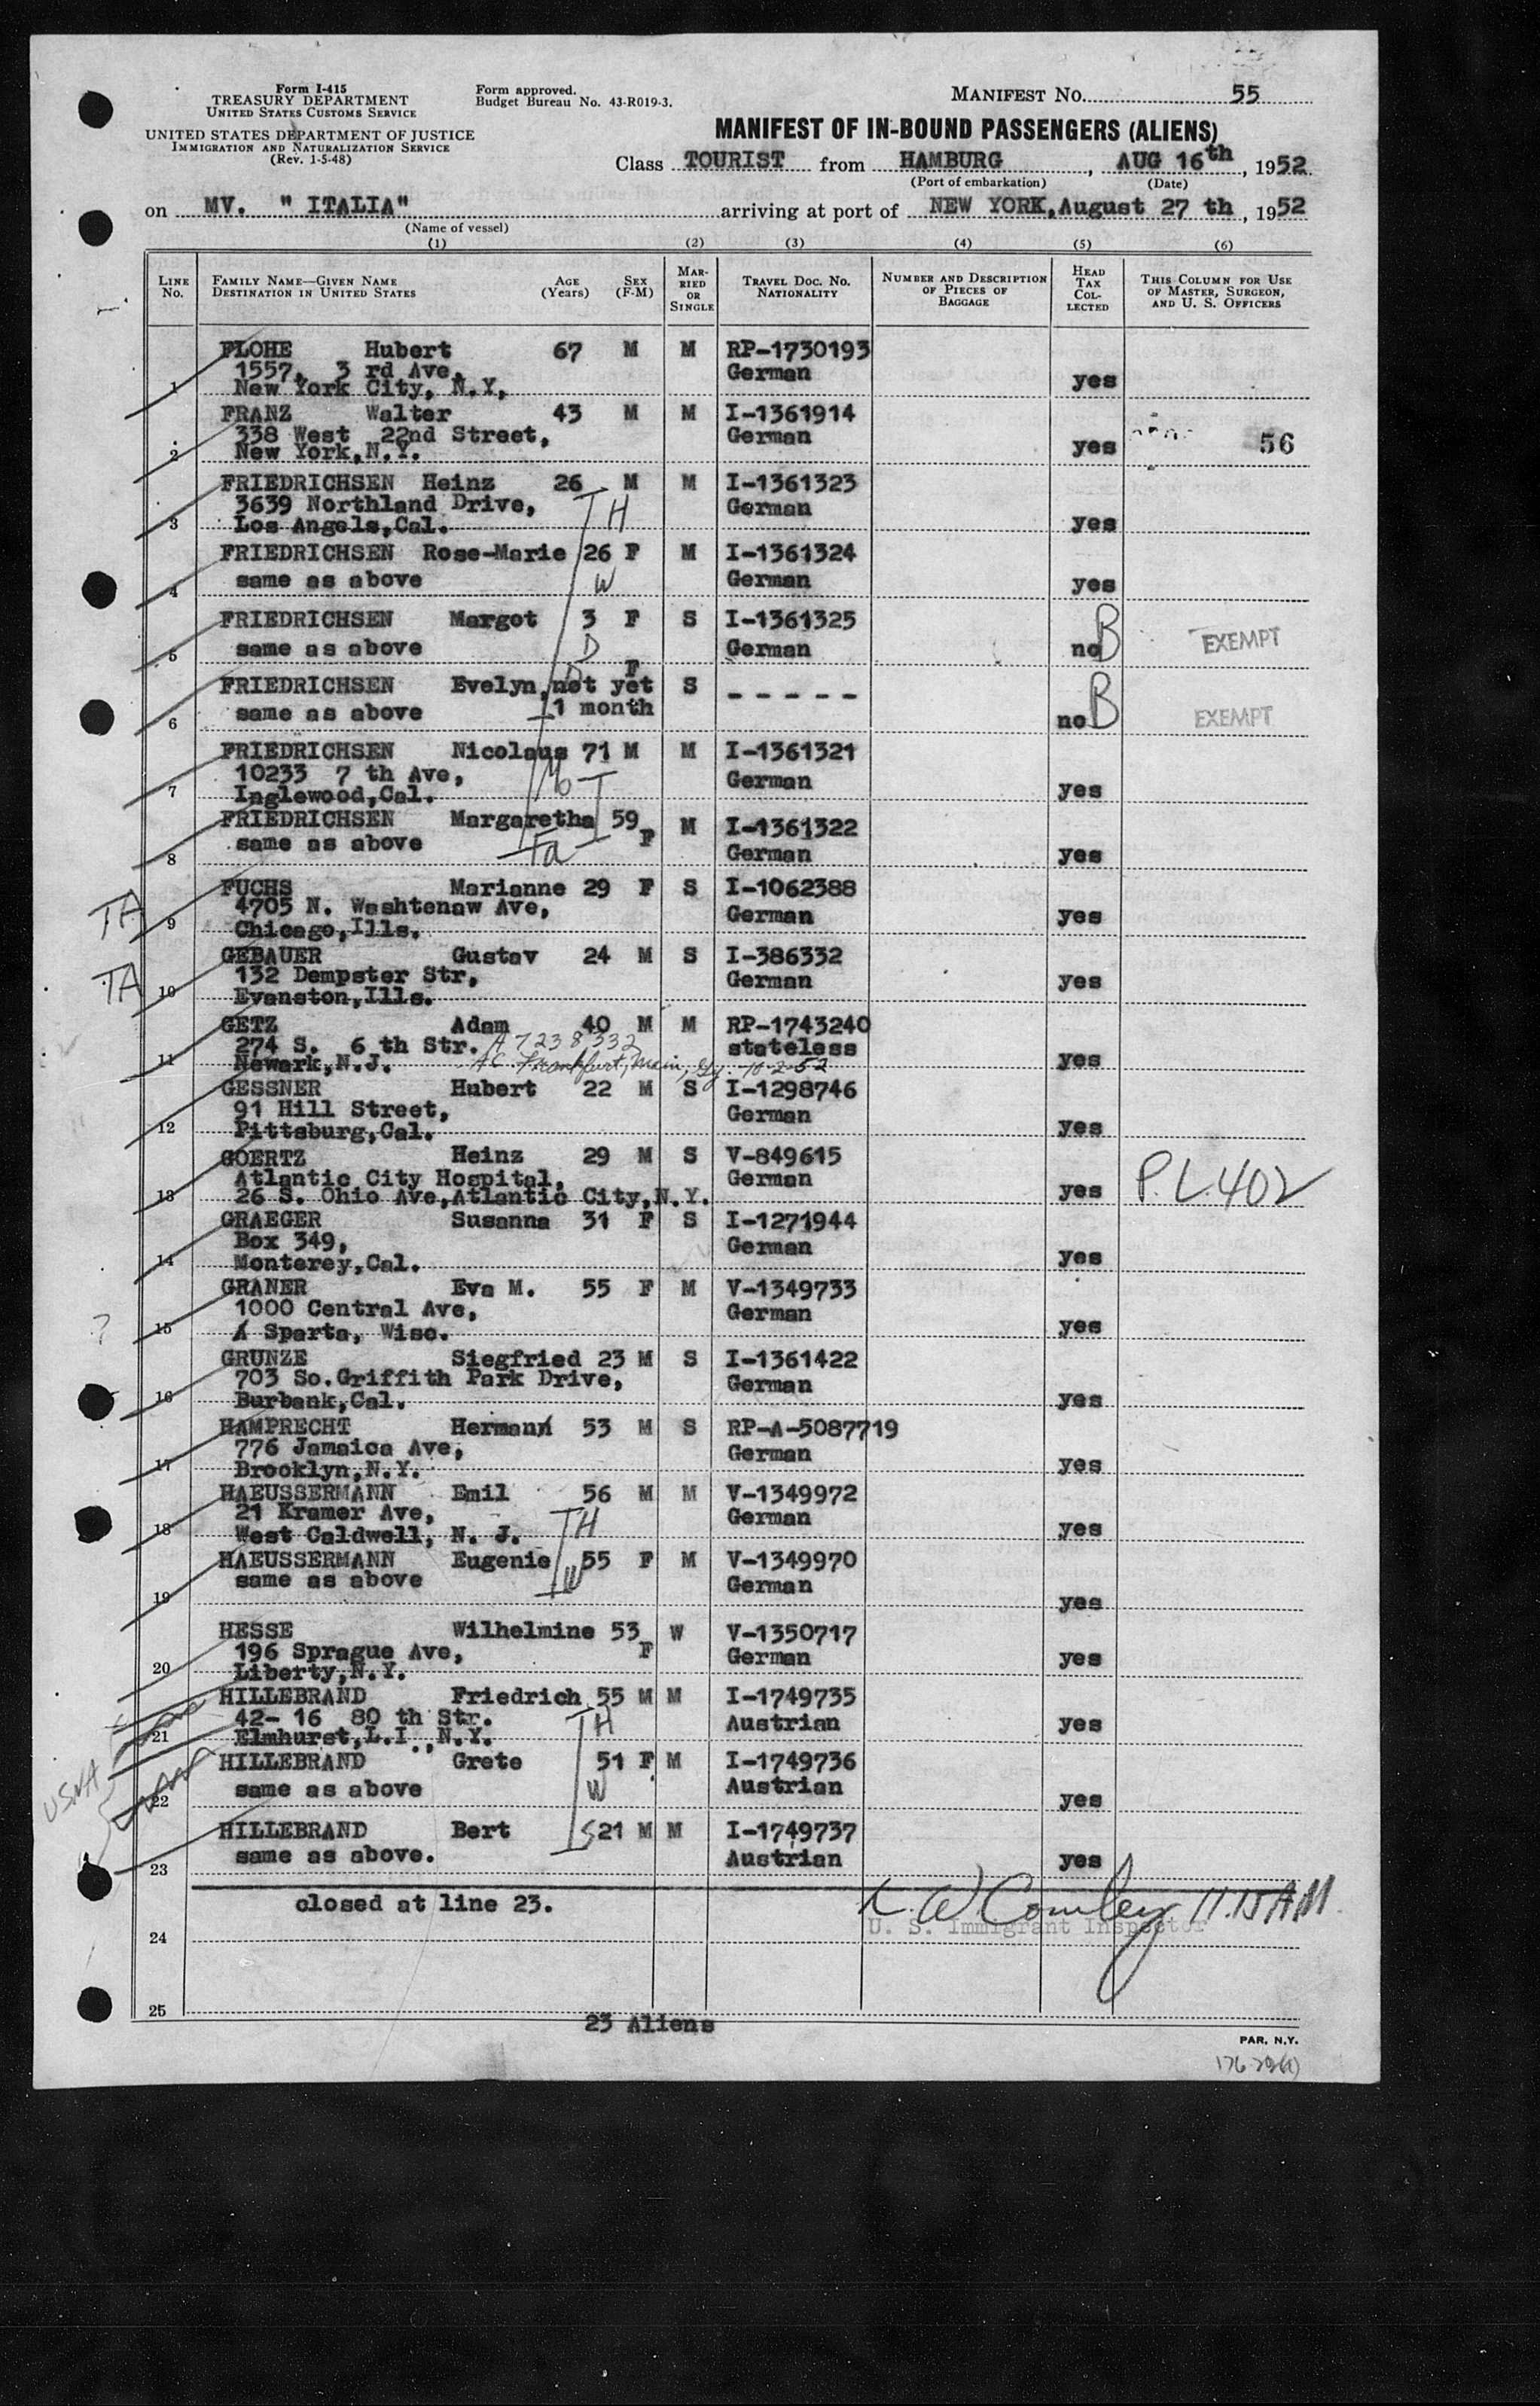 Form I-415
TREASURY DEPARTMENT
UNITED STATES CUSTOMS SERVICE
UNITED STATES DEPARTMENT OF JUSTICE
IMMIGRATION AND NATURALIZATION SERVICE
(Rev. 1-5-48)
Form approved.
Budget Bureau No. 43-R019-3.
MANIFEST NO. 55
MANIFEST OF IN-BOUND PASSENGERS (ALIENS)
Class TOURIST from HAMBURG, AUG 16th, 1952
(Port of embarkation) (Date)
on MV. " ITALIA" arriving at port of NEW YORK, August 27 th, 1952
(Name of vessel)
(1) (2) (3) (4) (5) (6)
LINE No. FAMILY NAME—GIVEN NAME DESTINATION IN UNITED STATES AGE (Years) SEX (F-M) MARRIED OR SINGLE TRAVEL DOC. NO. NATIONALITY NUMBER AND DESCRIPTION OF PIECES OF BAGGAGE HEAD TAX COLLECTED THIS COLUMN FOR USE OF MASTER, SURGEON, AND U. S. OFFICERS
FLOHE Hubert 67 M M RP-1730193
1557, 3 rd Ave, German
1 New York City, N.Y, yes
FRANZ Walter 43 M M I-1361914
338 West 22nd Street, German
2 New York,N.Y. yes 56
FRIEDRICHSEN Heinz 26 M M I-1361323
3639 Northland Drive, H German
3 Los Angels,Cal. yes
FRIEDRICHSEN Rose-Marie 26 F M I-1361324
4 same as above W German yes
FRIEDRICHSEN Margot 3 F S I-1361325
5 same as above D German no B EXEMPT
FRIEDRICHSEN Evelyn,not yet F S - - - - -
6 same as above 1 month no B EXEMPT
FRIEDRICHSEN Nicolaus 71 M M I-1361321
10233 7 th Ave, Mo German
7 Inglewood,Cal. yes
FRIEDRICHSEN Margaretha 59 F M I-1361322
8 same as above Fa German yes
FUCHS Marianne 29 F S I-1062388
TA 4705 N. Washtenaw Ave, German
9 Chicago,Ills. yes
GEBAUER Gustav 24 M S I-386332
TA 132 Dempster Str, German
10 Evanston,Ills. yes
GETZ Adam 40 M M RP-1743240
274 S. 6 th Str. A 7238332 stateless
11 Newark,N.J. AC Frankfurt, Main, Gy. 10-2-52 yes
GESSNER Hubert 22 M S I-1298746
91 Hill Street, German
12 Pittsburg,Cal. yes
GOERTZ Heinz 29 M S V-849615
Atlantic City Hospital, German
13 26 S. Ohio Ave,Atlantic City,N.Y. yes P.L.402
GRAEGER Susanna 31 F S I-1271944
Box 349, German
14 Monterey,Cal. yes
GRANER Eva M. 55 F M V-1349733
1000 Central Ave, German
? 15 Sparta, Wisc. yes
GRUNZE Siegfried 23 M S I-1361422
703 So.Griffith Park Drive, German
16 Burbank,Cal. yes
HAMPRECHT Hermann 53 M S RP-A-5087719
776 Jamaica Ave, German
17 Brooklyn,N.Y. yes
HAEUSSERMANN Emil 56 M M V-1349972
21 Kramer Ave, H German
18 West Caldwell, N. J. yes
HAEUSSERMANN Eugenie 55 F M V-1349970
19 same as above W German yes
HESSE Wilhelmine 53 F W V-1350717
196 Sprague Ave, German
20 Liberty,N.Y. yes
HILLEBRAND Friedrich 55 M M I-1749735
42- 16 80 th Str. H Austrian
21 Elmhurst,L.I.,N.Y. yes
HILLEBRAND Grete 51 F M I-1749736
USNA 22 same as above W Austrian yes
HILLEBRAND Bert S 21 M M I-1749737
23 same as above. Austrian yes
closed at line 23. 11.15 AM
24 U. S. Immigrant Inspector
25
23 Aliens
PAR. N.Y.